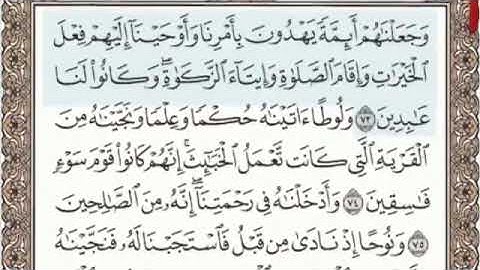 وَجَعَلْنَٰهُمْ أَئِمَّةً يَهْدُونَ بِأَمْرِنَا وَأَوْحَيْنَآ إِلَيْهِمْ فِعْلَ
ٱلْخَيْرَٰتِ وَإِقَامَ ٱلصَّلَوٰةِ وَإِيتَآءَ ٱلزَّكَوٰةِ ۖ وَكَانُوا۟ لَنَا
عَٰبِدِينَ ٧٣ وَلُوطًا ءَاتَيْنَٰهُ حُكْمًا وَعِلْمًا وَنَجَّيْنَٰهُ مِنَ
ٱلْقَرْيَةِ ٱلَّتِى كَانَت تَّعْمَلُ ٱلْخَبَٰٓئِثَ ۗ إِنَّهُمْ كَانُوا۟ قَوْمَ سَوْءٍ
فَٰسِقِينَ ٧٤ وَأَدْخَلْنَٰهُ فِى رَحْمَتِنَآ ۖ إِنَّهُۥ مِنَ ٱلصَّٰلِحِينَ
٧٥ وَنُوحًا إِذْ نَادَىٰ مِن قَبْلُ فَٱسْتَجَبْنَا لَهُۥ فَنَجَّيْنَٰهُ